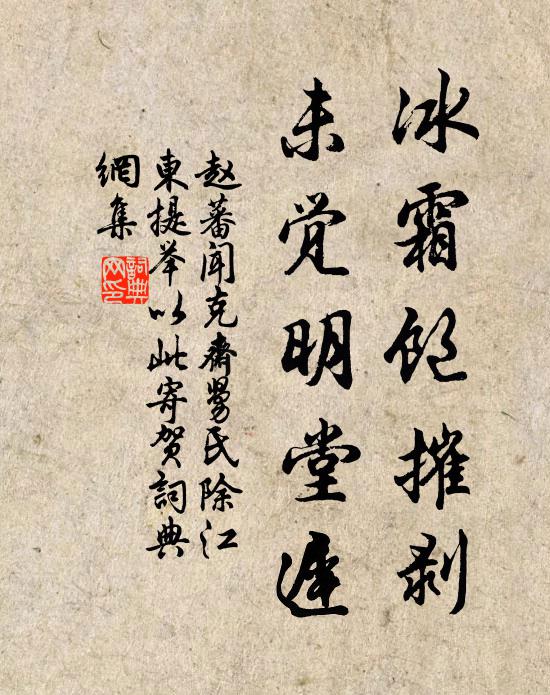 冰霜饱摧剥
未觉明堂迟
赵蕃闻克斋舅氏除江
东提举以此寄贺词典
網集
詞典網印